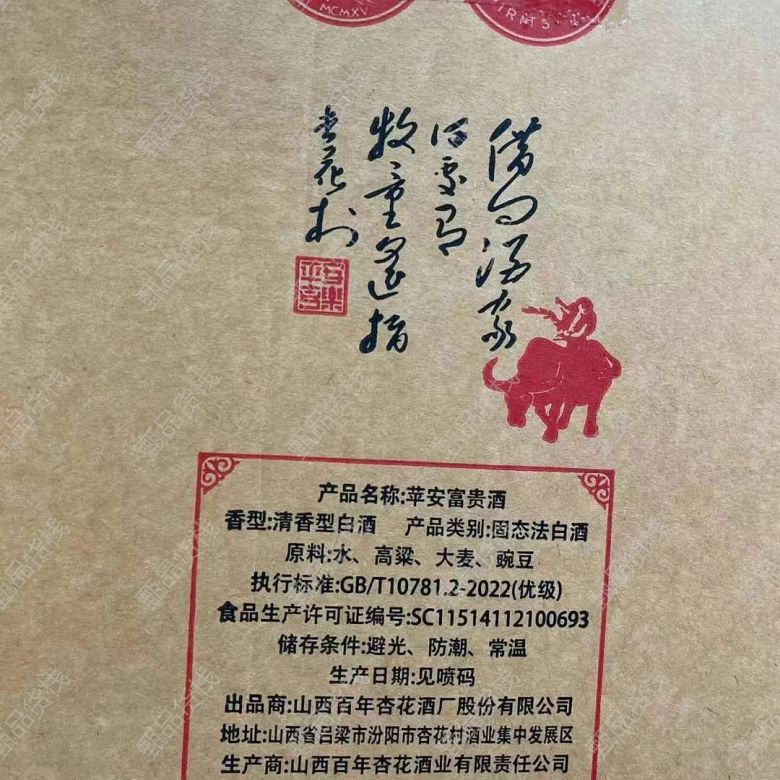 MCMXV
借问酒家
何处有
牧童遥指
杏花村
产品名称:苹安富贵酒
香型:清香型白酒 产品类别:固态法白酒
原料:水、高粱、大麦、豌豆
执行标准:GB/T10781.2-2022(优级)
食品生产许可证编号:SC11514112100693
储存条件:避光、防潮、常温
生产日期:见喷码
出品商:山西百年杏花酒厂股份有限公司
地址:山西省吕梁市汾阳市杏花村酒业集中发展区
生产商:山西百年杏花酒业有限责任公司
甄品货栈